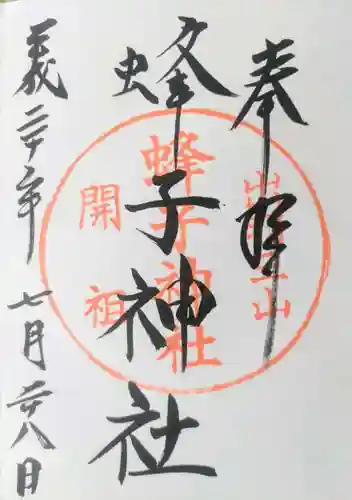 奉拝
蜂子神社
義二十年七月二十八日
出羽三山
蜂子神社
開祖